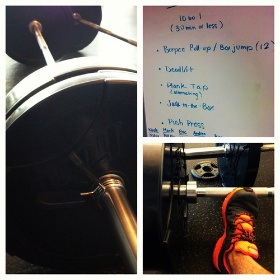 10 to 1
(30 min or less)
• Burpee Pull-up / Box jump (12")
• Deadlift
• Plank Tap
(alternating)
• Jack-in-the-Box
• Push Press